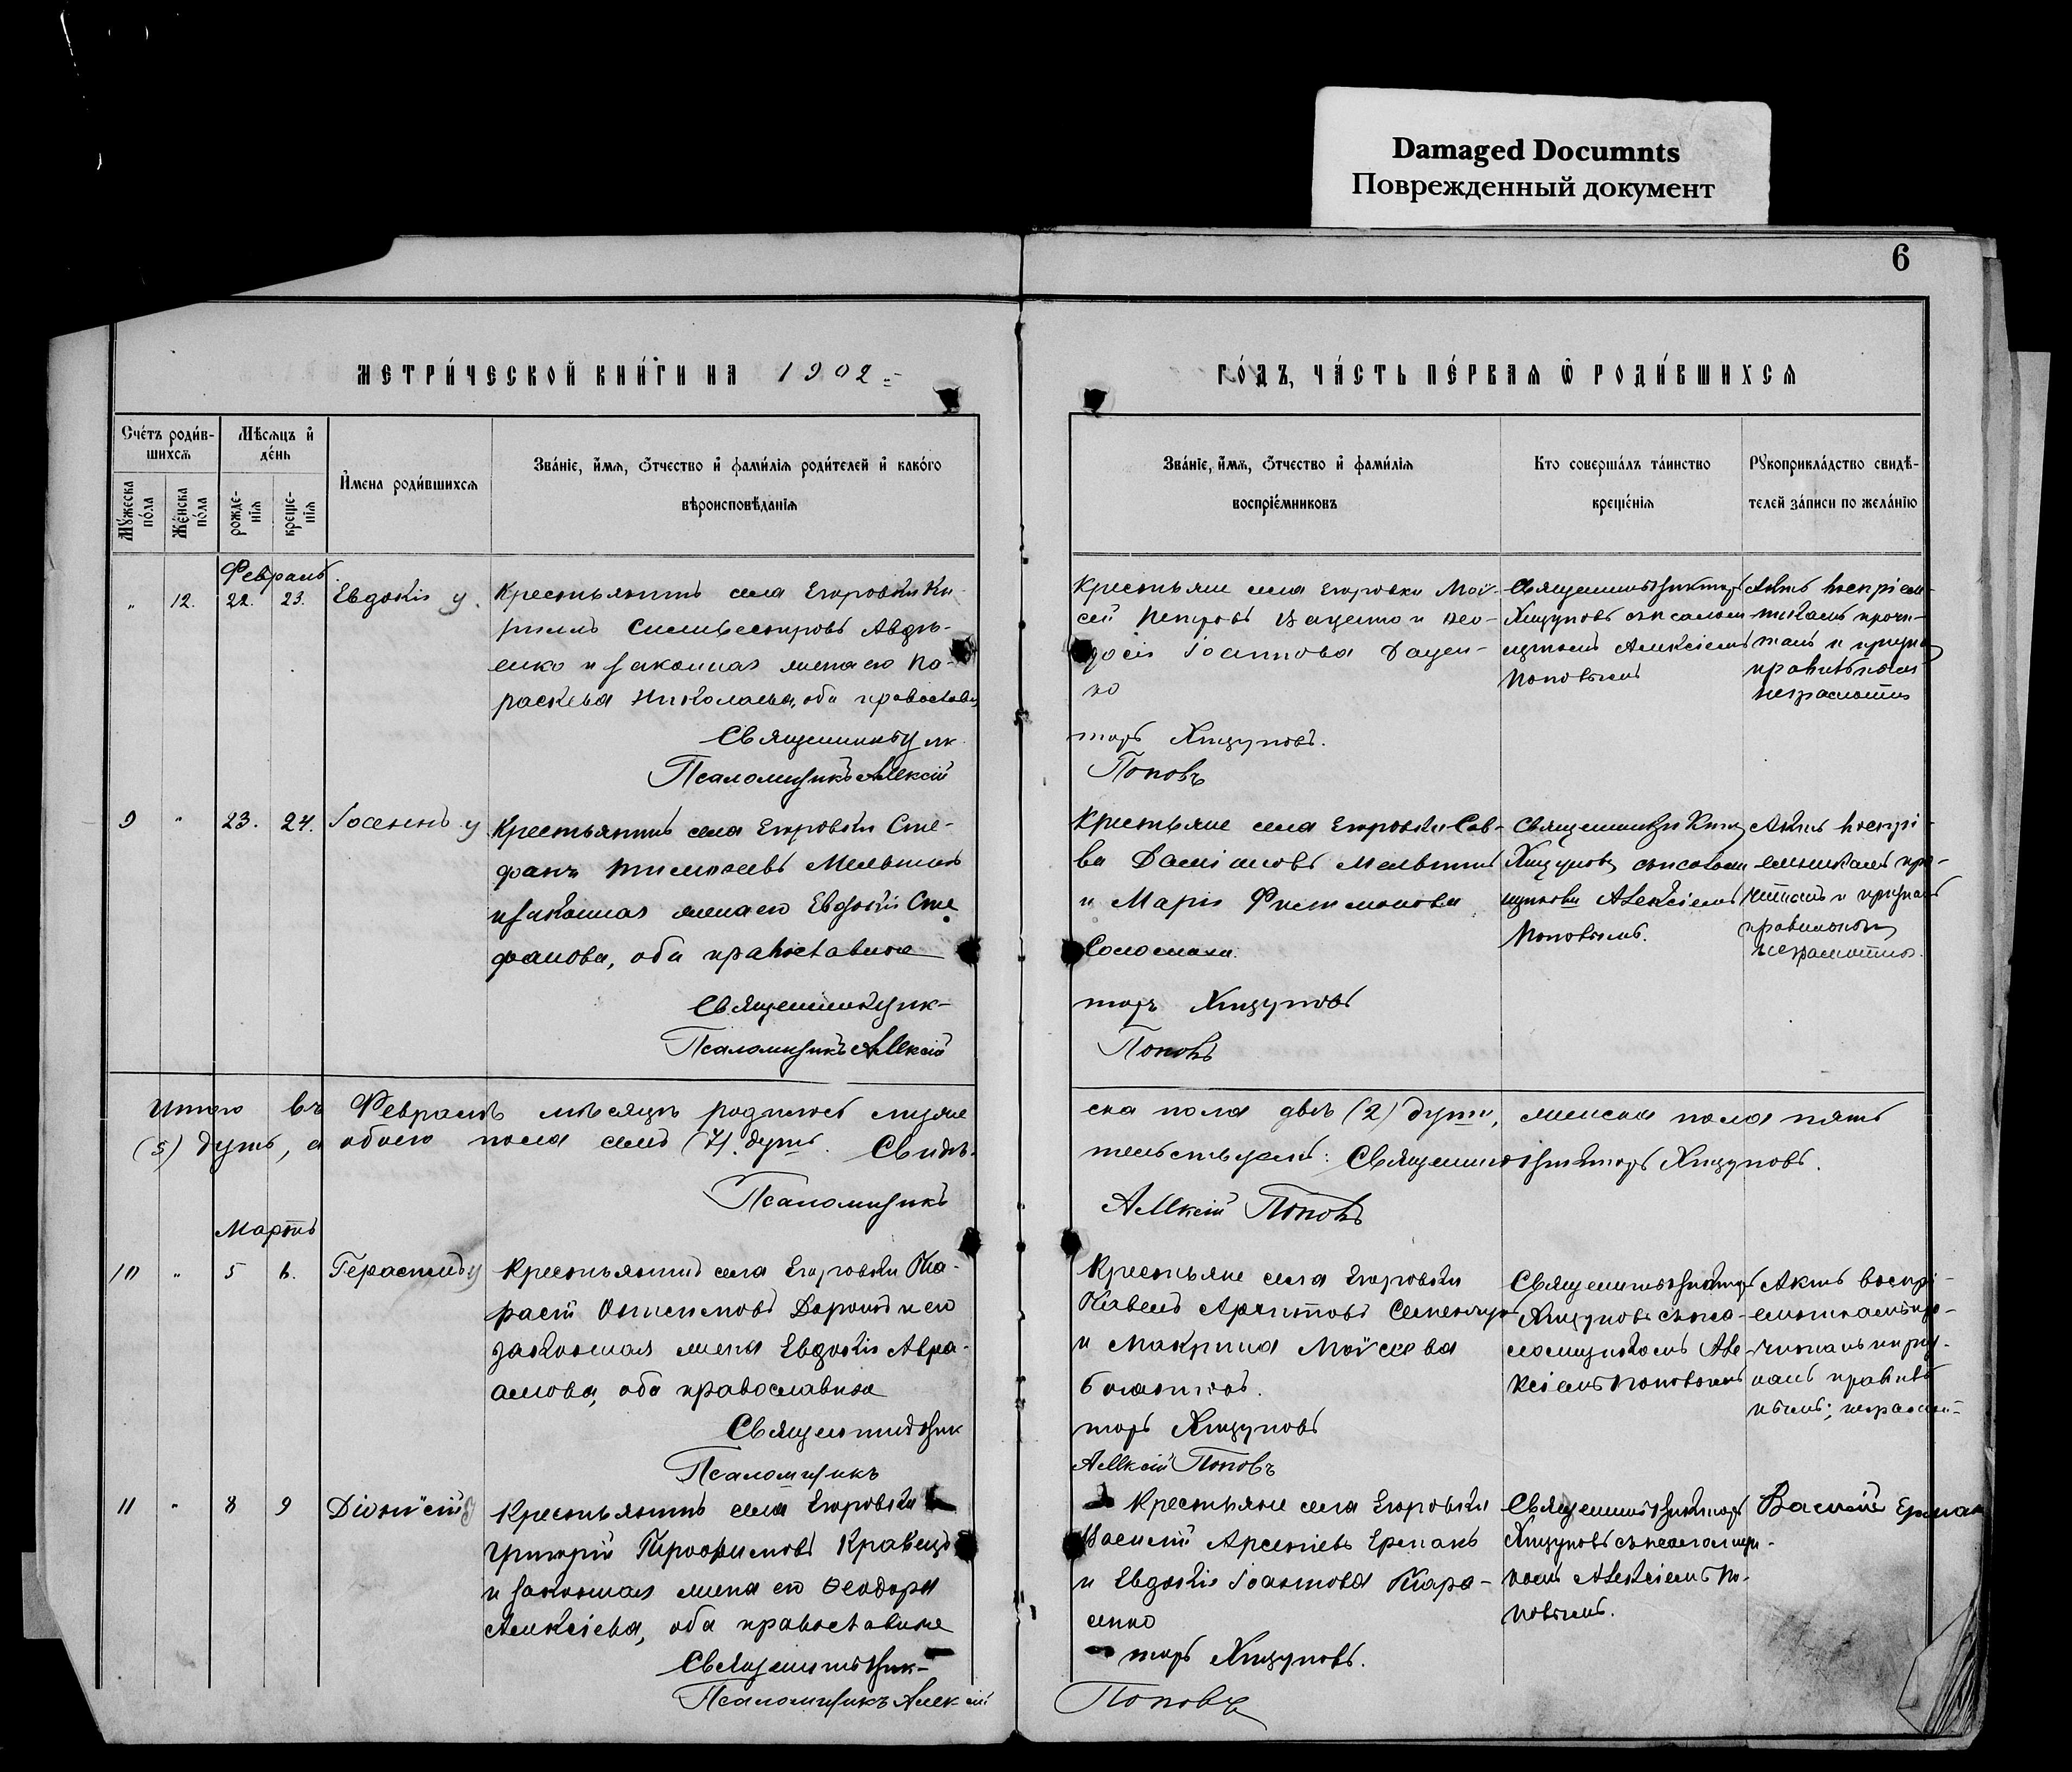 Damaged Documnts
Поврежденный документ
6
МЕТРИ́ЧЕСКОЙ КНИ́ГИ НА 1902
ГО́ДЪ, ЧА́СТЬ ПЕ́РВАЯ Ѡ РОДИ́ВШИХСЯ
Сче́тъ роди́в-
шихся
Мѣ́сяцъ и҆
де́нь
И҆мена роди́вшихся
Зва́нїе, и҆́мя, ѻ҆́тчество и҆ фами́лїя роди́телей и҆ како́го
вѣроисповѣ́данїя
Му́жеска
по́ла
Же́нска
по́ла
рожде-
нїя
креще-
нїя
Зва́нїе, и҆́мя, ѻ҆́тчество и҆ фами́лїя
воспрїе́мниковъ
Кто соверша́лъ та́инство
креще́нїя
Рукоприкла́дство свидѣ́-
телей за́писи по жела́нїю
Февраль
12. 22. 23. Евдокія
Крестьянинъ села Егоровки Ки-
риллъ Сильвестровъ Авдѣ-
енко и законная жена его Па-
раскева Николаева, оба православн
Священникъ Вик
Псаломщикъ Алексій
Крестьяне села Егоровки Мои-
сей Петровъ и Ѳео-
досія Іоаннова
ко
торъ Хицуновъ.
Поповъ
Священникъ Викторъ
Хицуновъ съ псалом
щикомъ Алексіемъ
Поповымъ
Актъ воспріем-
никамъ прочи-
танъ и призна
правильным
неграмотны
9 23. 24. Іосифъ
Крестьянинъ села Егоровки Сте-
фанъ Тимоѳеевъ Мельникъ
и законная жена его Евдокія Сте
фанова, оба православные
Священникъ Вик-
Псаломщикъ Алексій
Крестьяне села Егоровки Сав-
ва Даміановъ Мельникъ
и Марія Филимонова
Соломаха.
торъ Хицуновъ
Поповъ
Священникъ Викт
Хицуновъ съ псалом
щикомъ Алексіемъ
Поповымъ.
Актъ воспрі-
емникамъ про-
читанъ и признанъ
правильным
неграмотны.
Итого въ Февралѣ мѣсяцѣ родилось муже
ска пола двѣ (2) души, женска пола пять
(5) душъ, а обоего пола семь (7) душъ. Свидѣ-
тельствуемъ: Священникъ Викторъ Хицуновъ.
Псаломщикъ
Алексій Поповъ
Мартъ
10 5 6. Герасимъ
Крестьянинъ села Егоровки Та-
расій Онисимовъ и его
законная жена Евдокія Авра-
амова, оба православные
Священникъ Вик
Псаломщикъ
Крестьяне села Егоровки
Павелъ
и Макрина Моисеева
торъ Хицуновъ
Алексій Поповъ
Священникъ Викторъ
Хицуновъ съ пса-
ломщикомъ Але-
ксіемъ Поповымъ
Актъ воспрі-
емникамъ про-
читанъ и приз-
нанъ правиль
нымъ; неграмот-
11 8 9 Діонисій
Крестьянинъ села Егоровки
Григорій Трофимовъ Кравецъ
и законная жена его Ѳеодора
Алексіева, оба православные
Священникъ Вик-
Псаломщикъ Алексій
Крестьяне села Егоровки
Василій Арсеніевъ Ермакъ
и Евдокія Іоаннова Тара-
сенко
торъ Хицуновъ.
Поповъ
Священникъ Викторъ
Хицуновъ съ псаломщи-
комъ Алексіемъ По-
повымъ.
Василій Ермак